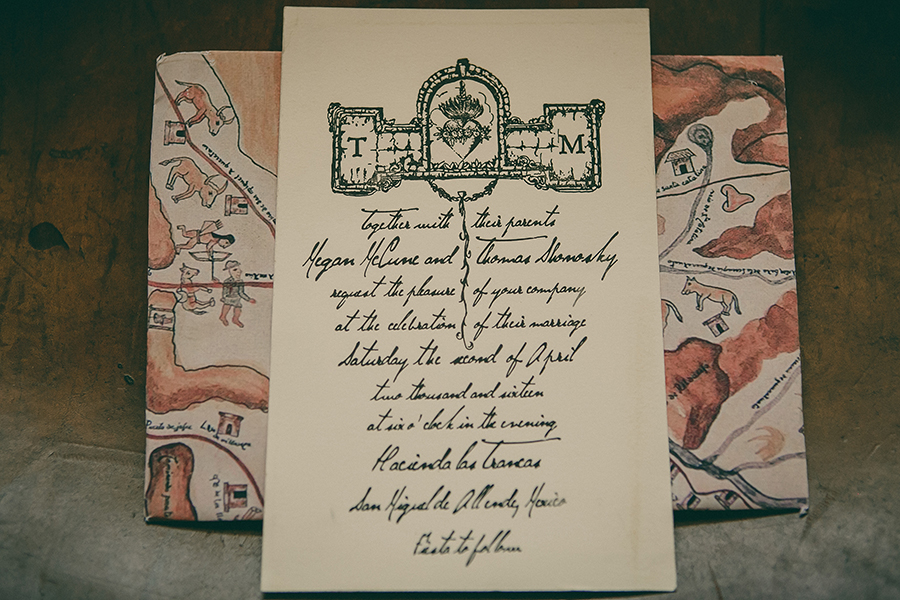 T M
together with their parents
Megan McCune and Thomas Shonosky
request the pleasure of your company
at the celebration of their marriage
Saturday the second of April
two thousand and sixteen
at six o'clock in the evening
Hacienda las Trancas
San Miguel de Allende, Mexico
Fiesta to follow